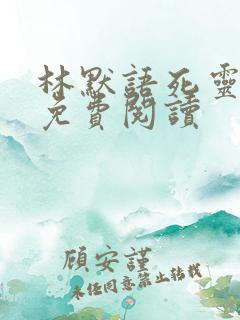 林默語死靈
免費閱讀
顧安謹
未經同意禁止轉載